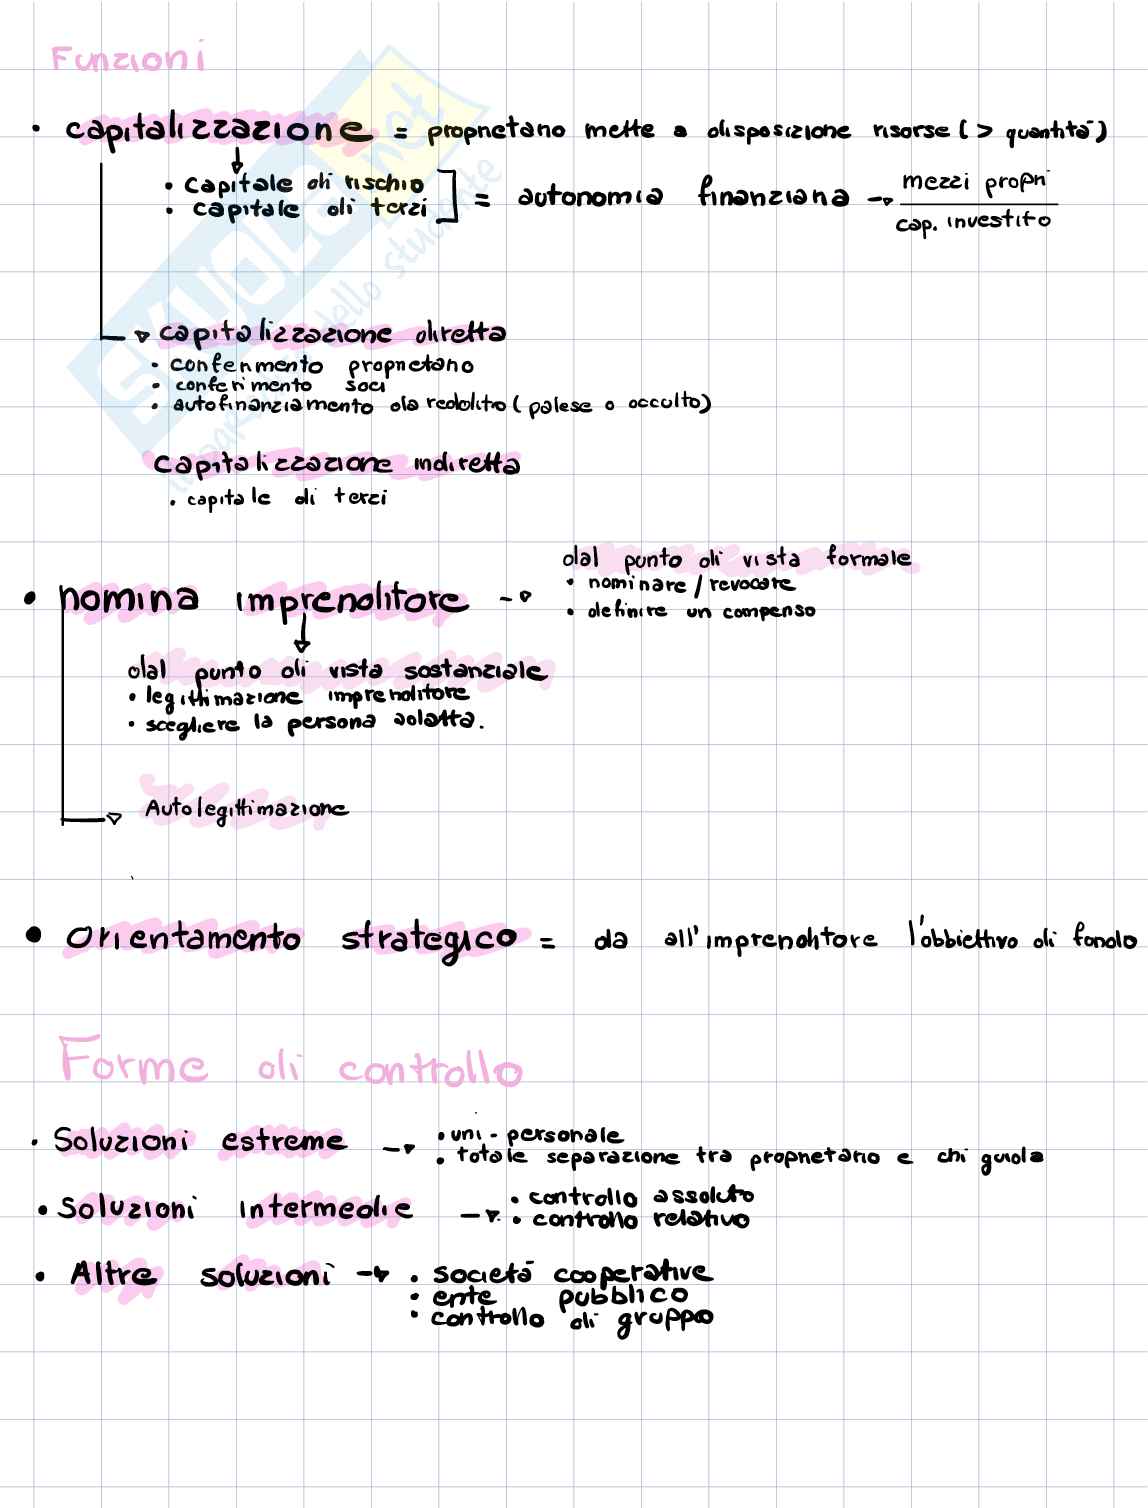 Funzioni
• capitalizzazione = proprietario mette a disposizione risorse ( > quantità)
• capitale di rischio
• capitale di terzi
= autonomia finanziaria → mezzi propri
cap. investito
capitalizzazione diretta
• conferimento proprietario
• conferimento soci
• autofinanziamento da reddito ( palese o occulto)
Capitalizzazione indiretta
• capitale di terzi
dal punto di vista formale
• nomina imprenditore →
• nominare / revocare
• definire un compenso
dal punto di vista sostanziale
• legittimazione imprenditore
• scegliere la persona adatta.
Autolegittimazione
• Orientamento strategico = da all'imprenditore l'obbiettivo di fondo
Forme di controllo
• Soluzioni estreme → • uni-personale
• totale separazione tra proprietario e chi guida
• Soluzioni intermedie → • controllo assoluto
• controllo relativo
• Altre soluzioni → • società cooperative
• ente pubblico
• controllo di gruppo
SKUOLA.net
dello studente